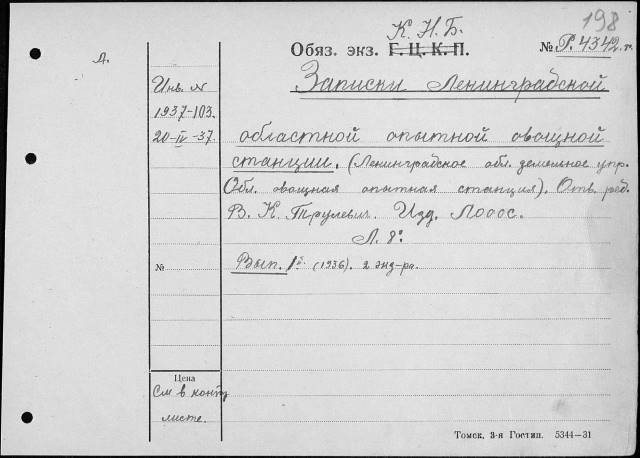 198
К. Н. Б.
Обяз. экз. Г. Ц. К. П. № Р. 4342.
А.
Записки Ленинградской
Инв. N
1937-103.
20-IV-37.
областной опытной овощной
станции. (Ленинградское обл. земельное упр.
Обл. овощная опытная станция). Отв. ред.
В. К. Трулевич. Изд. Лооос.
Л. 8º
№ Вып. 1 (1936). 2 экз-ра.
Цена
См в конт
листе.
Томск, 3-я Гостип. 5344—31